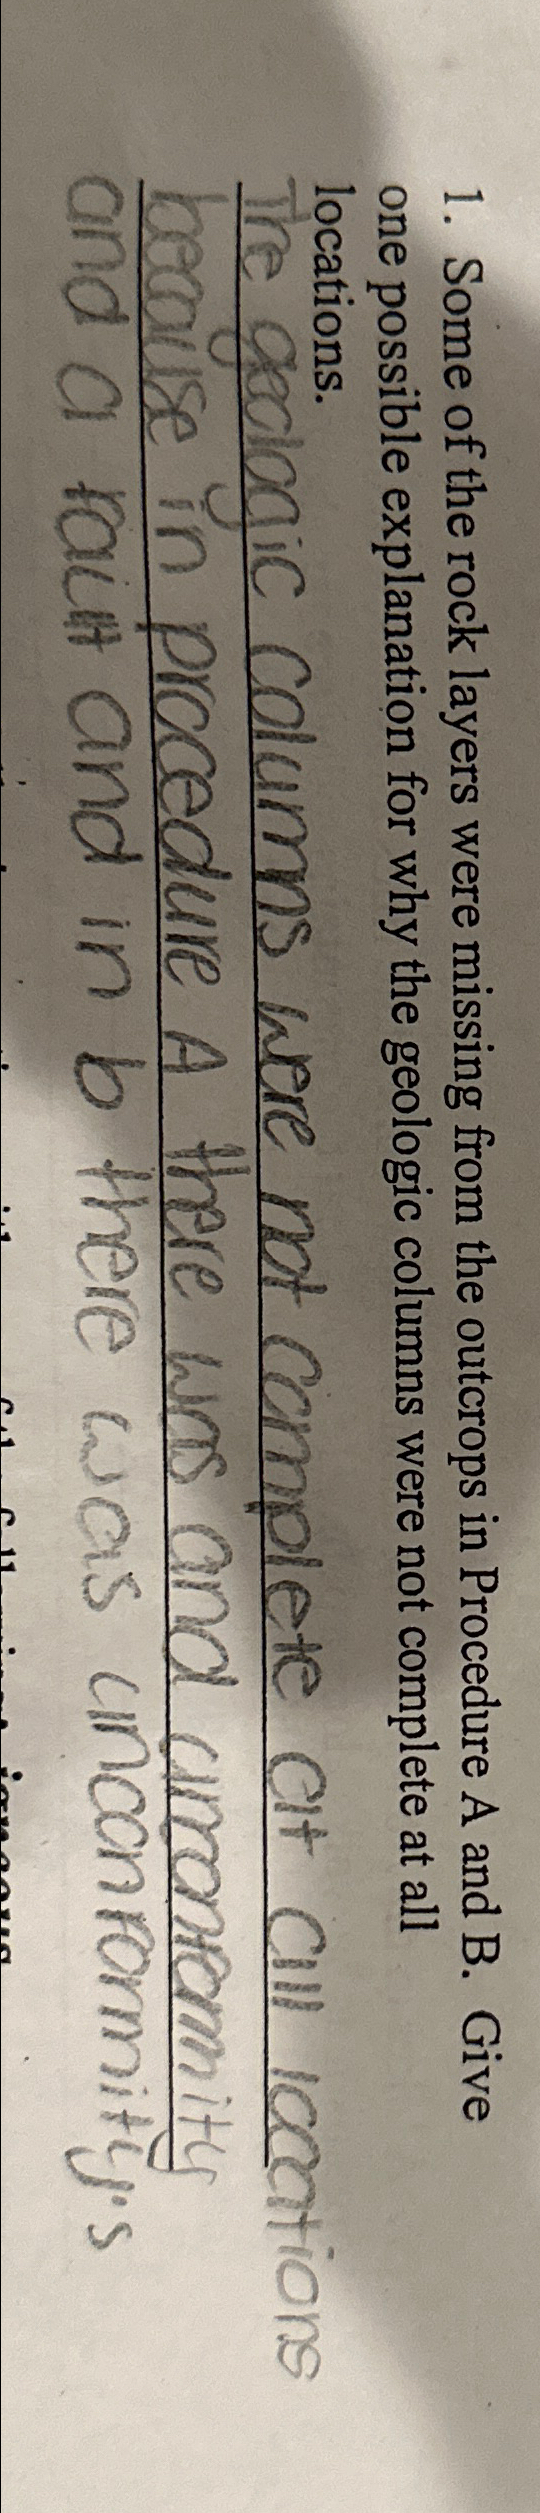 1. Some of the rock layers were missing from the outcrops in Procedure A and B. Give
one possible explanation for why the geologic columns were not complete at all
locations.
The geologic columns were not complete at all locations
because in procedure A there was and unconformity
and a fault and in b there was unconformity's